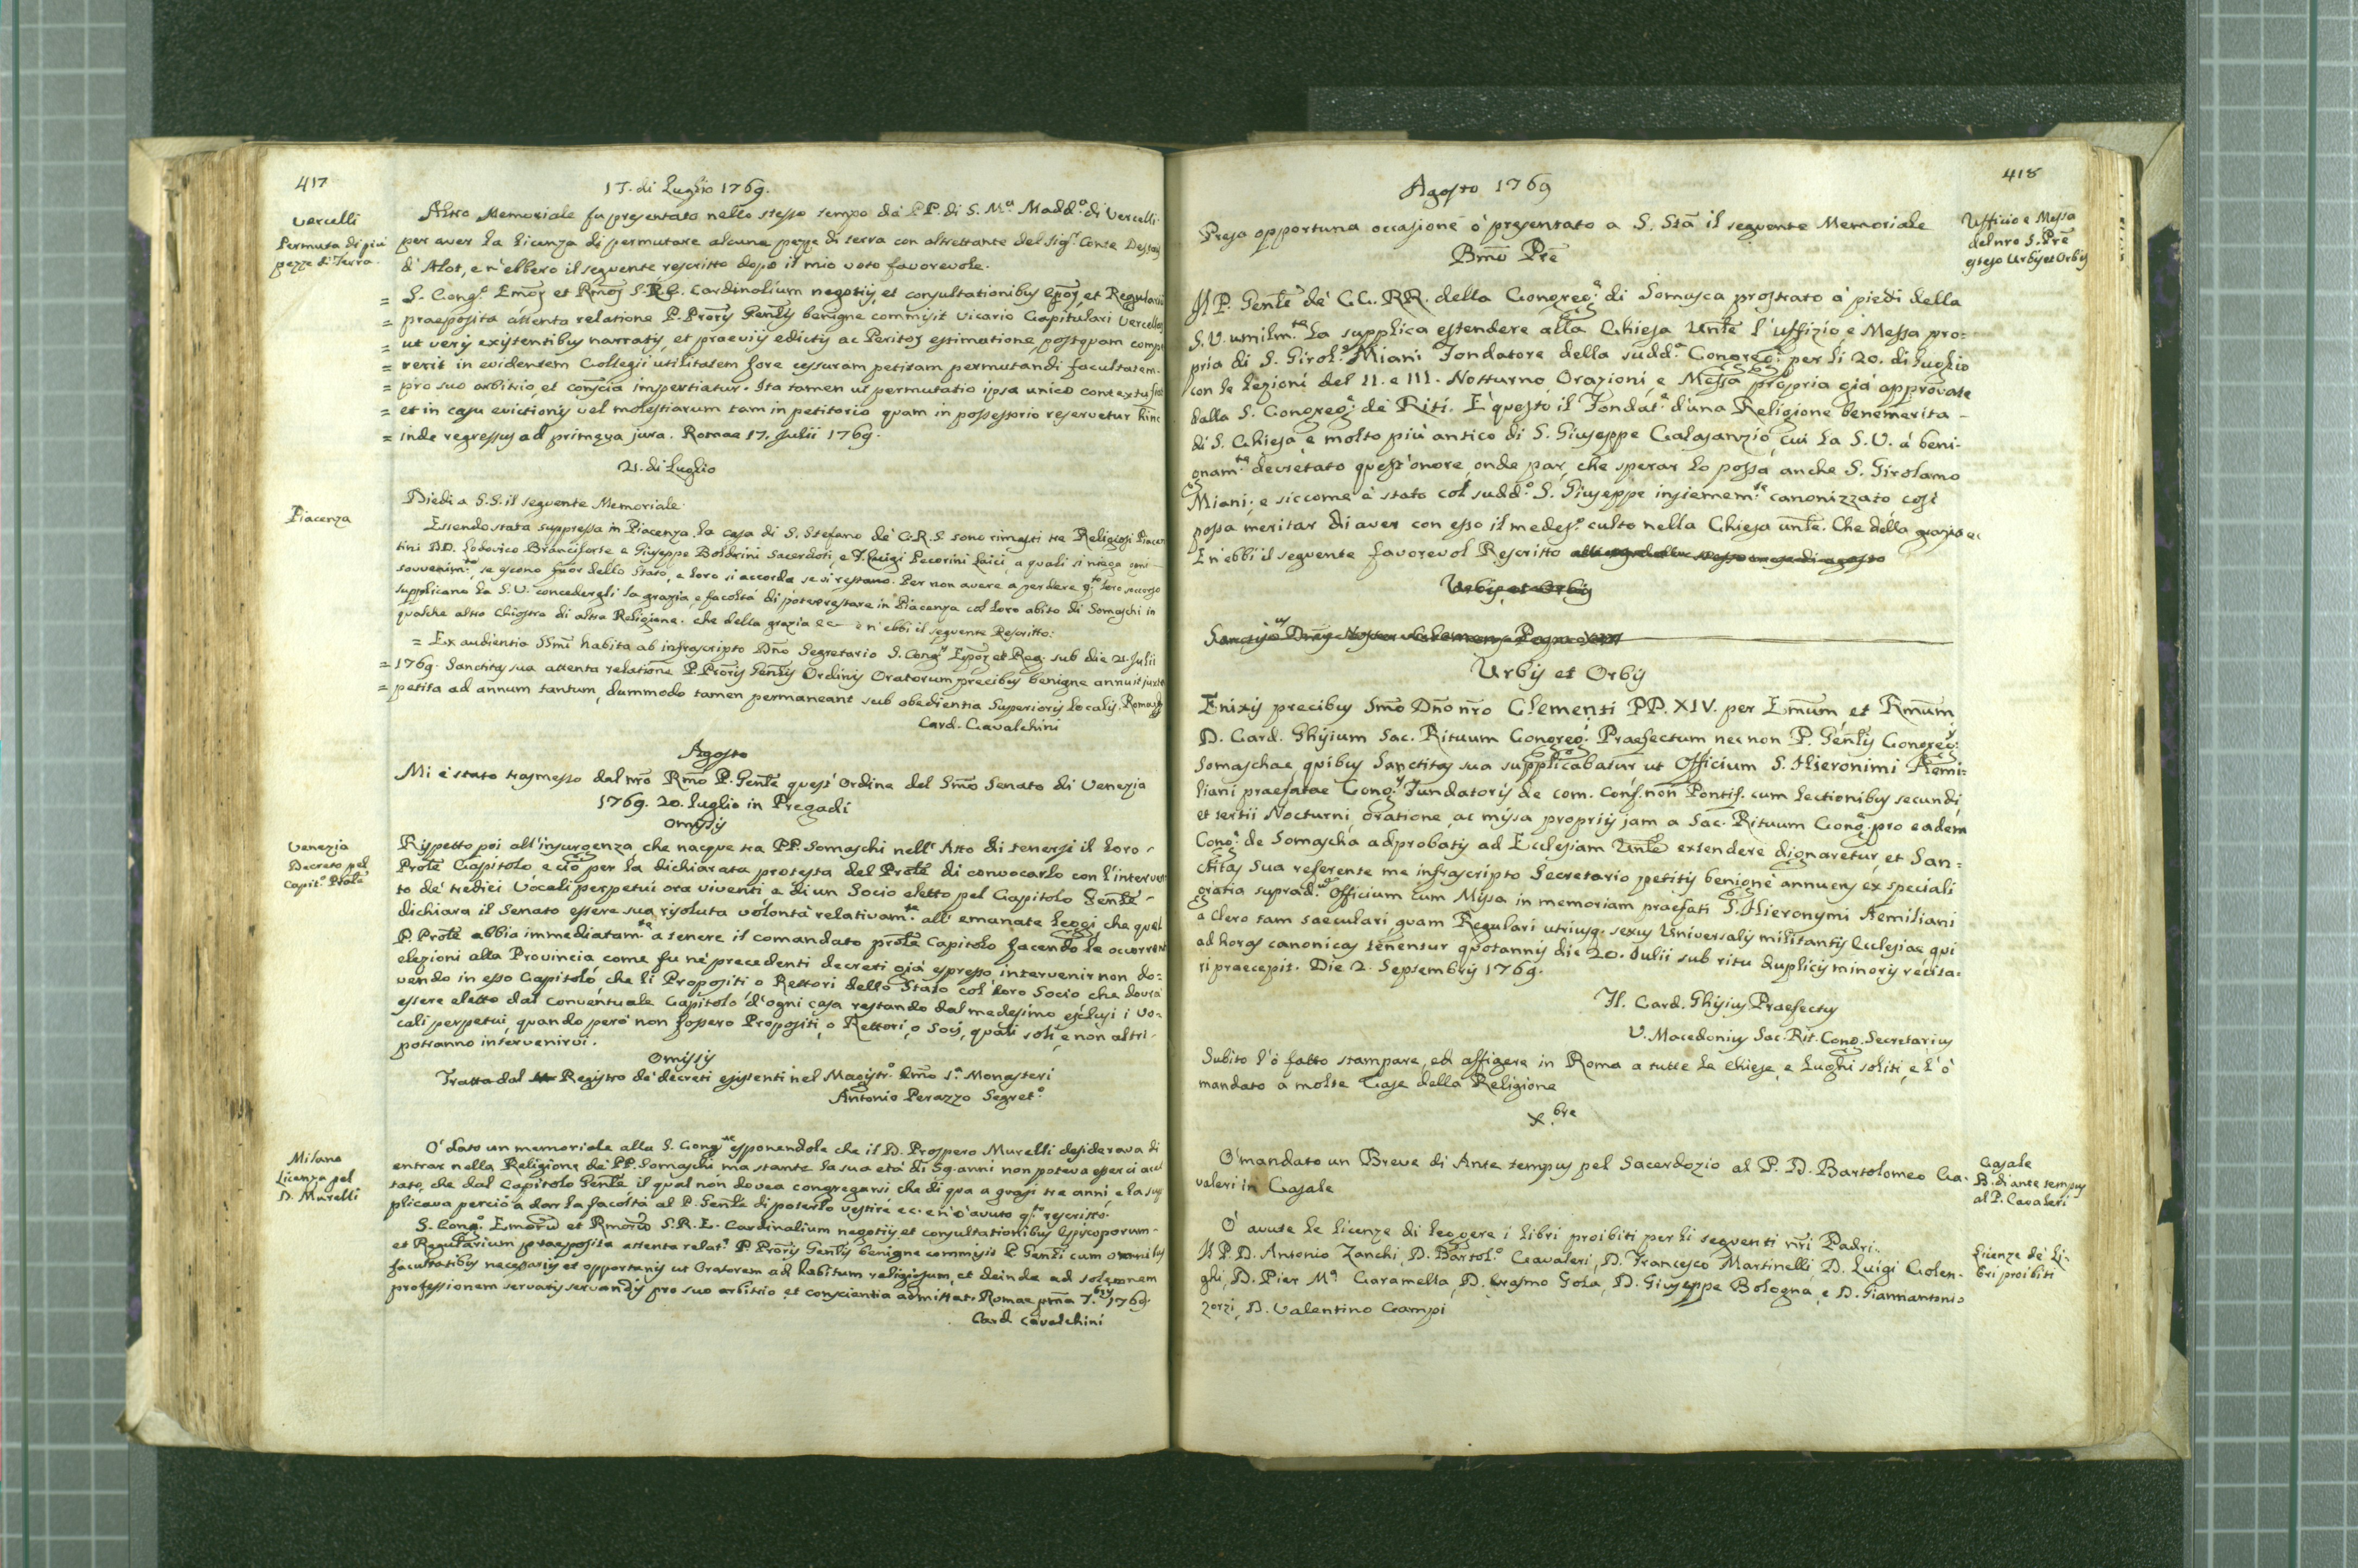 417
17. di Luglio 1769.
Vercelli
Permuta di più
pezze di Terra.
Altro Memoriale fu presentato nello stesso tempo da' PP. di S. Mª. Maddª. di Vercelli
per aver la licenza di permutare alcune pezze di terra con altrettante del Sigr. Conte
d'Alot, e n'ebbero il seguente rescritto dopo il mio voto favorevole.
= S. Congo. Emoz et Rmoz S.R.E. Cardinalium negotijs, et consultationibus Epoz, et Regularium
= praeposita attenta relatione P. Proris Genlis benigne commisit Vicario Capitulari Vercellen
= ut veris existentibus narratis, et praeviis edictis ac Peritoz estimatione, postquam compe
= rerit in evidentem Collegii utilitatem fore cessuram petitam permutandi facultatem
= pro suo arbitrio, et conscia impertiatur. Ita tamen ut permutatio ipsa unico contextu fiat
= et in casu evictionis vel molestiarum tam in petitorio quam in possessorio reservetur hinc
= inde regressus ad primaeva jura. Romae 17. Julii 1769.
21. di Luglio
Piacenza
Diedi a S.S. il seguente Memoriale.
Essendo stata suppressa in Piacenza la casa di S. Stefano de' C.R.S. sono rimasti tre Religiosi Piacen
tini DD. Lodovico Branciforte e Giuseppe Boldrini Sacerdoti, e F. Luigi Pecorini Laici, a quali si niega ogni
sovvenimto., se escono fuor dello Stato, e loro si accorda se vi restano. Per non avere a perdere qto. loro soccorso
supplicano la S.V. concedergli la grazia, e facoltà di poter restare in Piacenza col loro abito di Somaschi in
qualche altro Chiostro di altra Religione. che della grazia ec e n'ebbi il seguente Rescritto:
= Ex audientia SSmi habita ab infrascripto Dno Segretario S. Congs. Epoz et Reg. sub die 21. Julii
= 1769. Sanctitas sua attenta relatione P. Proris Genlis Ordinis Oratorum precibus benigne annuit juxta
= petita ad annum tantum, dummodo tamen permaneant sub obedientia Superioris localis. Romae
Card. Cavalchini
Agosto
Mi è stato trasmesso dal nro Rmo P. Genle quest'Ordine del Smo Senato di Venezia
1769. 20. Luglio in Pregadi
Omissis
Venezia
Decreto pel
Capito. Prole
Rispetto poi all'insurgenza che nacque tra PP. Somaschi nell'Atto di tenersi il loro
Prole Capitolo e ciò per la dichiarata protesta del Prole di convocarlo con l'interven
to de' tredici Vocali perpetui ora viventi e di un Socio eletto pel Capitolo Genle
dichiara il Senato essere sua risoluta volontà relativamte. all'emanate leggi che quel
P. Prole abbia immediatamte. a tenere il comandato prole Capitolo facendo le ocorrenti
elezioni alla Provincia come fu ne' precedenti decreti già espresso, intervenir non do=
vendo in esso Capitolo che li Propositi o Rettori dello Stato col loro Socio che dovrà
essere eletto dal conventuale Capitolo d'ogni casa restando dal medesimo esclusi i Vo=
cali perpetui, quando però non fossero Propositi, o Rettori, o Socij, quali soli, e non altri
potranno intervenirvi.
Omissis
Tratta dal Registro de' decreti esistenti nel Magistro. Emo sª. Monasteri
Antonio Perazzo Segreto.
Milano
Licenza pel
D. Murelli
O' dato un memoriale alla S. Congne esponendole che il D. Prospero Murelli desiderava di
entrar nella Religione de' PP. Somaschi, ma stante la sua età di 59. anni non poteva esserci accet
tato, che dal Capitolo Genle il qual non dovea congregarsi, che di qua a quasi tre anni, e la sup
plicava perciò a dar la facoltà al P. Genle di poterlo vestire ec. e n'ò avuto qto. rescritto.
S. Congo. Emorũ et Rmorũ S.R.E. Cardinalium negotiis et consultationibus Episcoporum
et Regularium praeposita attenta relate. P. Proris Genlis benigne commisit P. Genli cum omnibus
facultatibus necessariis et opportunis ut Oratorem ad habitum religiosum, et deinde ad solemnem
professionem servatis servandis pro suo arbitrio et conscientia admittat. Romae pma 7.bris 1769.
Card. Cavalchini
418
Agosto 1769
Ufficio e Messa
del nro S. Pre
esteso Urbis et Orbis
Presa opportuna occasione ò presentato a S. Stà il seguente Memoriale
Bmo Pre
Il P. Genle de' CC. RR. della Congrego. di Somasca prostrato a' piedi della
S.V. umilmte. la supplica estendere alla Chiesa Unle l'uffizio, e Messa pro=
pria di S. Girolo. Miani Fondatore della sudda. Congrego. per li 20. di Luglio
con le Lezioni del II. e III. Notturno, Orazioni, e Messa propria già approvate
dalla S. Congrega. de' Riti. E' questo il Fondate. d'una Religione benemerita
di S. Chiesa, e molto più antico di S. Giuseppe Calasanzio, cui la S.V. à beni-
gnamte. decretato quest'onore, onde par, che sperar lo possa anche S. Girolamo
Miani; e siccome è stato col suddo. S. Giuseppe insiememte. canonizzato così
possa meritar di aver con esso il medeso. culto nella Chiesa unle. Che della grazia ec
E n'ebbi il seguente favorevol Rescritto
Urbis et Orbis
Urbis et Orbis
Enixis precibus Smo Dno nro Clementi PP. XIV. per Emum, et Rmum
D. Card. Ghisium Sac. Rituum Congregi. Praefectum nec non P. Genlis Congregs.
Somaschae quibus Sanctitas sua supplicabatur ut Officium S. Hieronimi Aemi=
liani praefatae Congs. Fundatoris de com. Conf. non Pontif. cum lectionibus secundi,
et tertii Nocturni, oratione, ac missa propriis jam a Sac. Rituum Conga. pro eadem
Conge. de Somascha adprobatis ad Eclesiam Unle extendere dignaretur, et San=
ctitas Sua referente me infrascripto Secretario petitis benigne annuens ex speciali
gratia supradm. Officium cum Missa in memoriam praefati S. Hieronymi Aemiliani
a Clero tam saeculari quam Regulari utriusq. sexus Universalis militantis Eclesiae qui
ad horas canonicas tenentur quotannis die 20. Julii sub ritu duplicis minoris recita=
ri praecepit. Die 2. Septembris 1769.
Fl. Card. Ghisius Praefectus
V. Macedonius Sac. Rit. Cong. Secretarius
Subito l'ò fatto stampare, ed affigere in Roma a tutte le Chiese, e Luoghi soliti, e l'ò
mandato a molte Case della Religione
X.bre
Casale
B. di ante tempus
al P. Cavaleri
O' mandato un Breve di Ante tempus pel Sacerdozio al P. D. Bartolomeo Ca-
valeri in Casale
Licenze de' Li-
bri proibiti
O' avute le licenze di leggere i libri proibiti per li seguenti nri Padri.
Il P. D. Antonio Zanchi, D. Bartolo. Cavaleri, D. Francesco Martinelli, D. Luigi Golen-
ghi, D. Pier Mª. Caramella, D. Erasmo Gola, D. Giuseppe Bologna, e D. Giannantonio
Zorzi, D. Valentino Campi